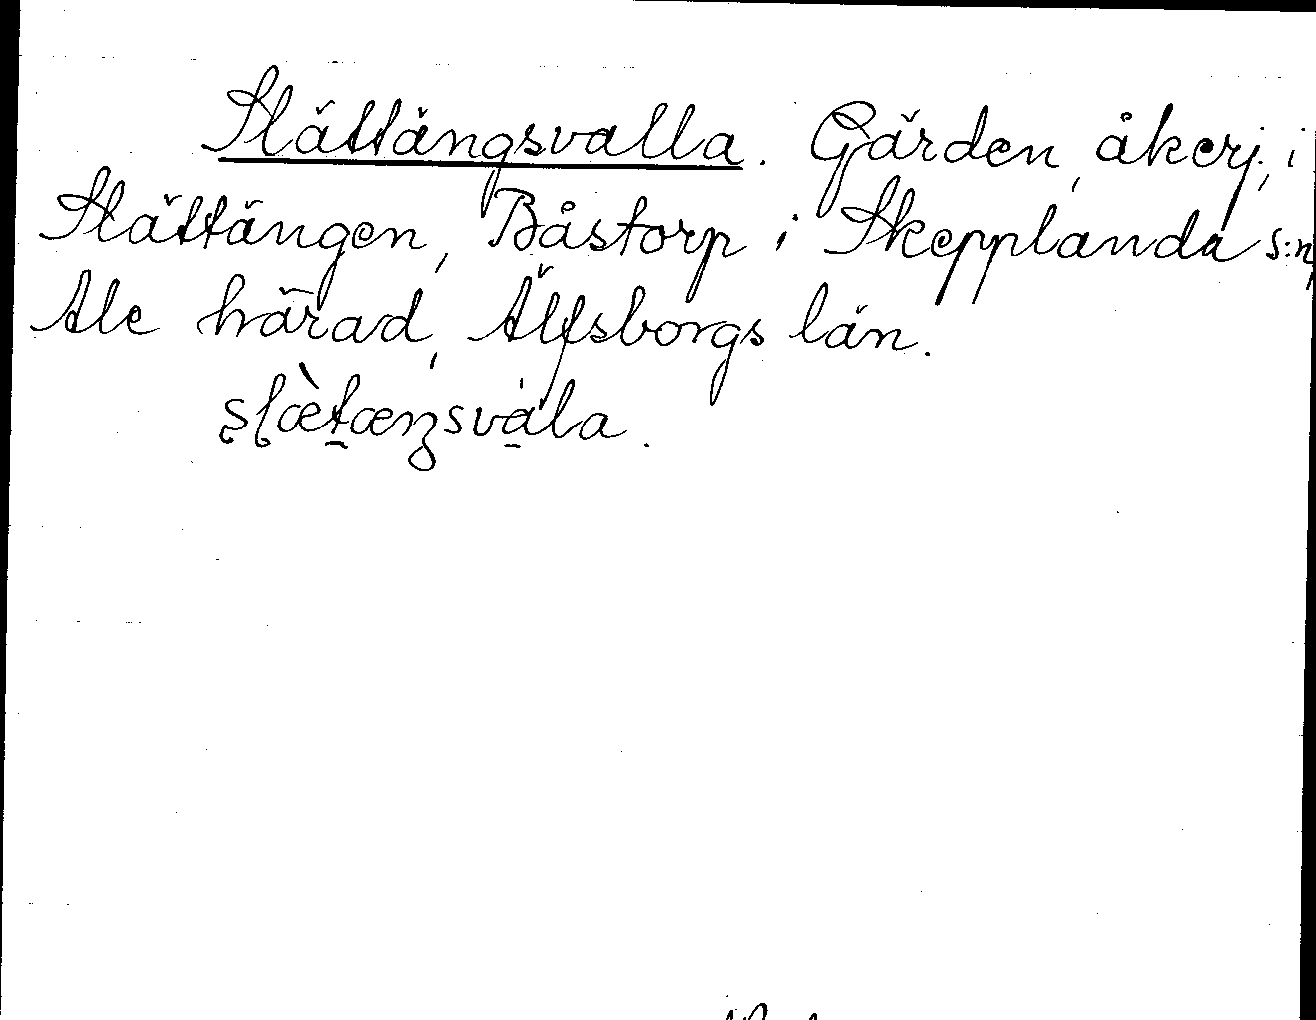 Slättängsvalla. Gärden, åkerj., i
Slättängen, Båstorp i Skepplanda s:n,
Ale härad, Älfsborgs län.